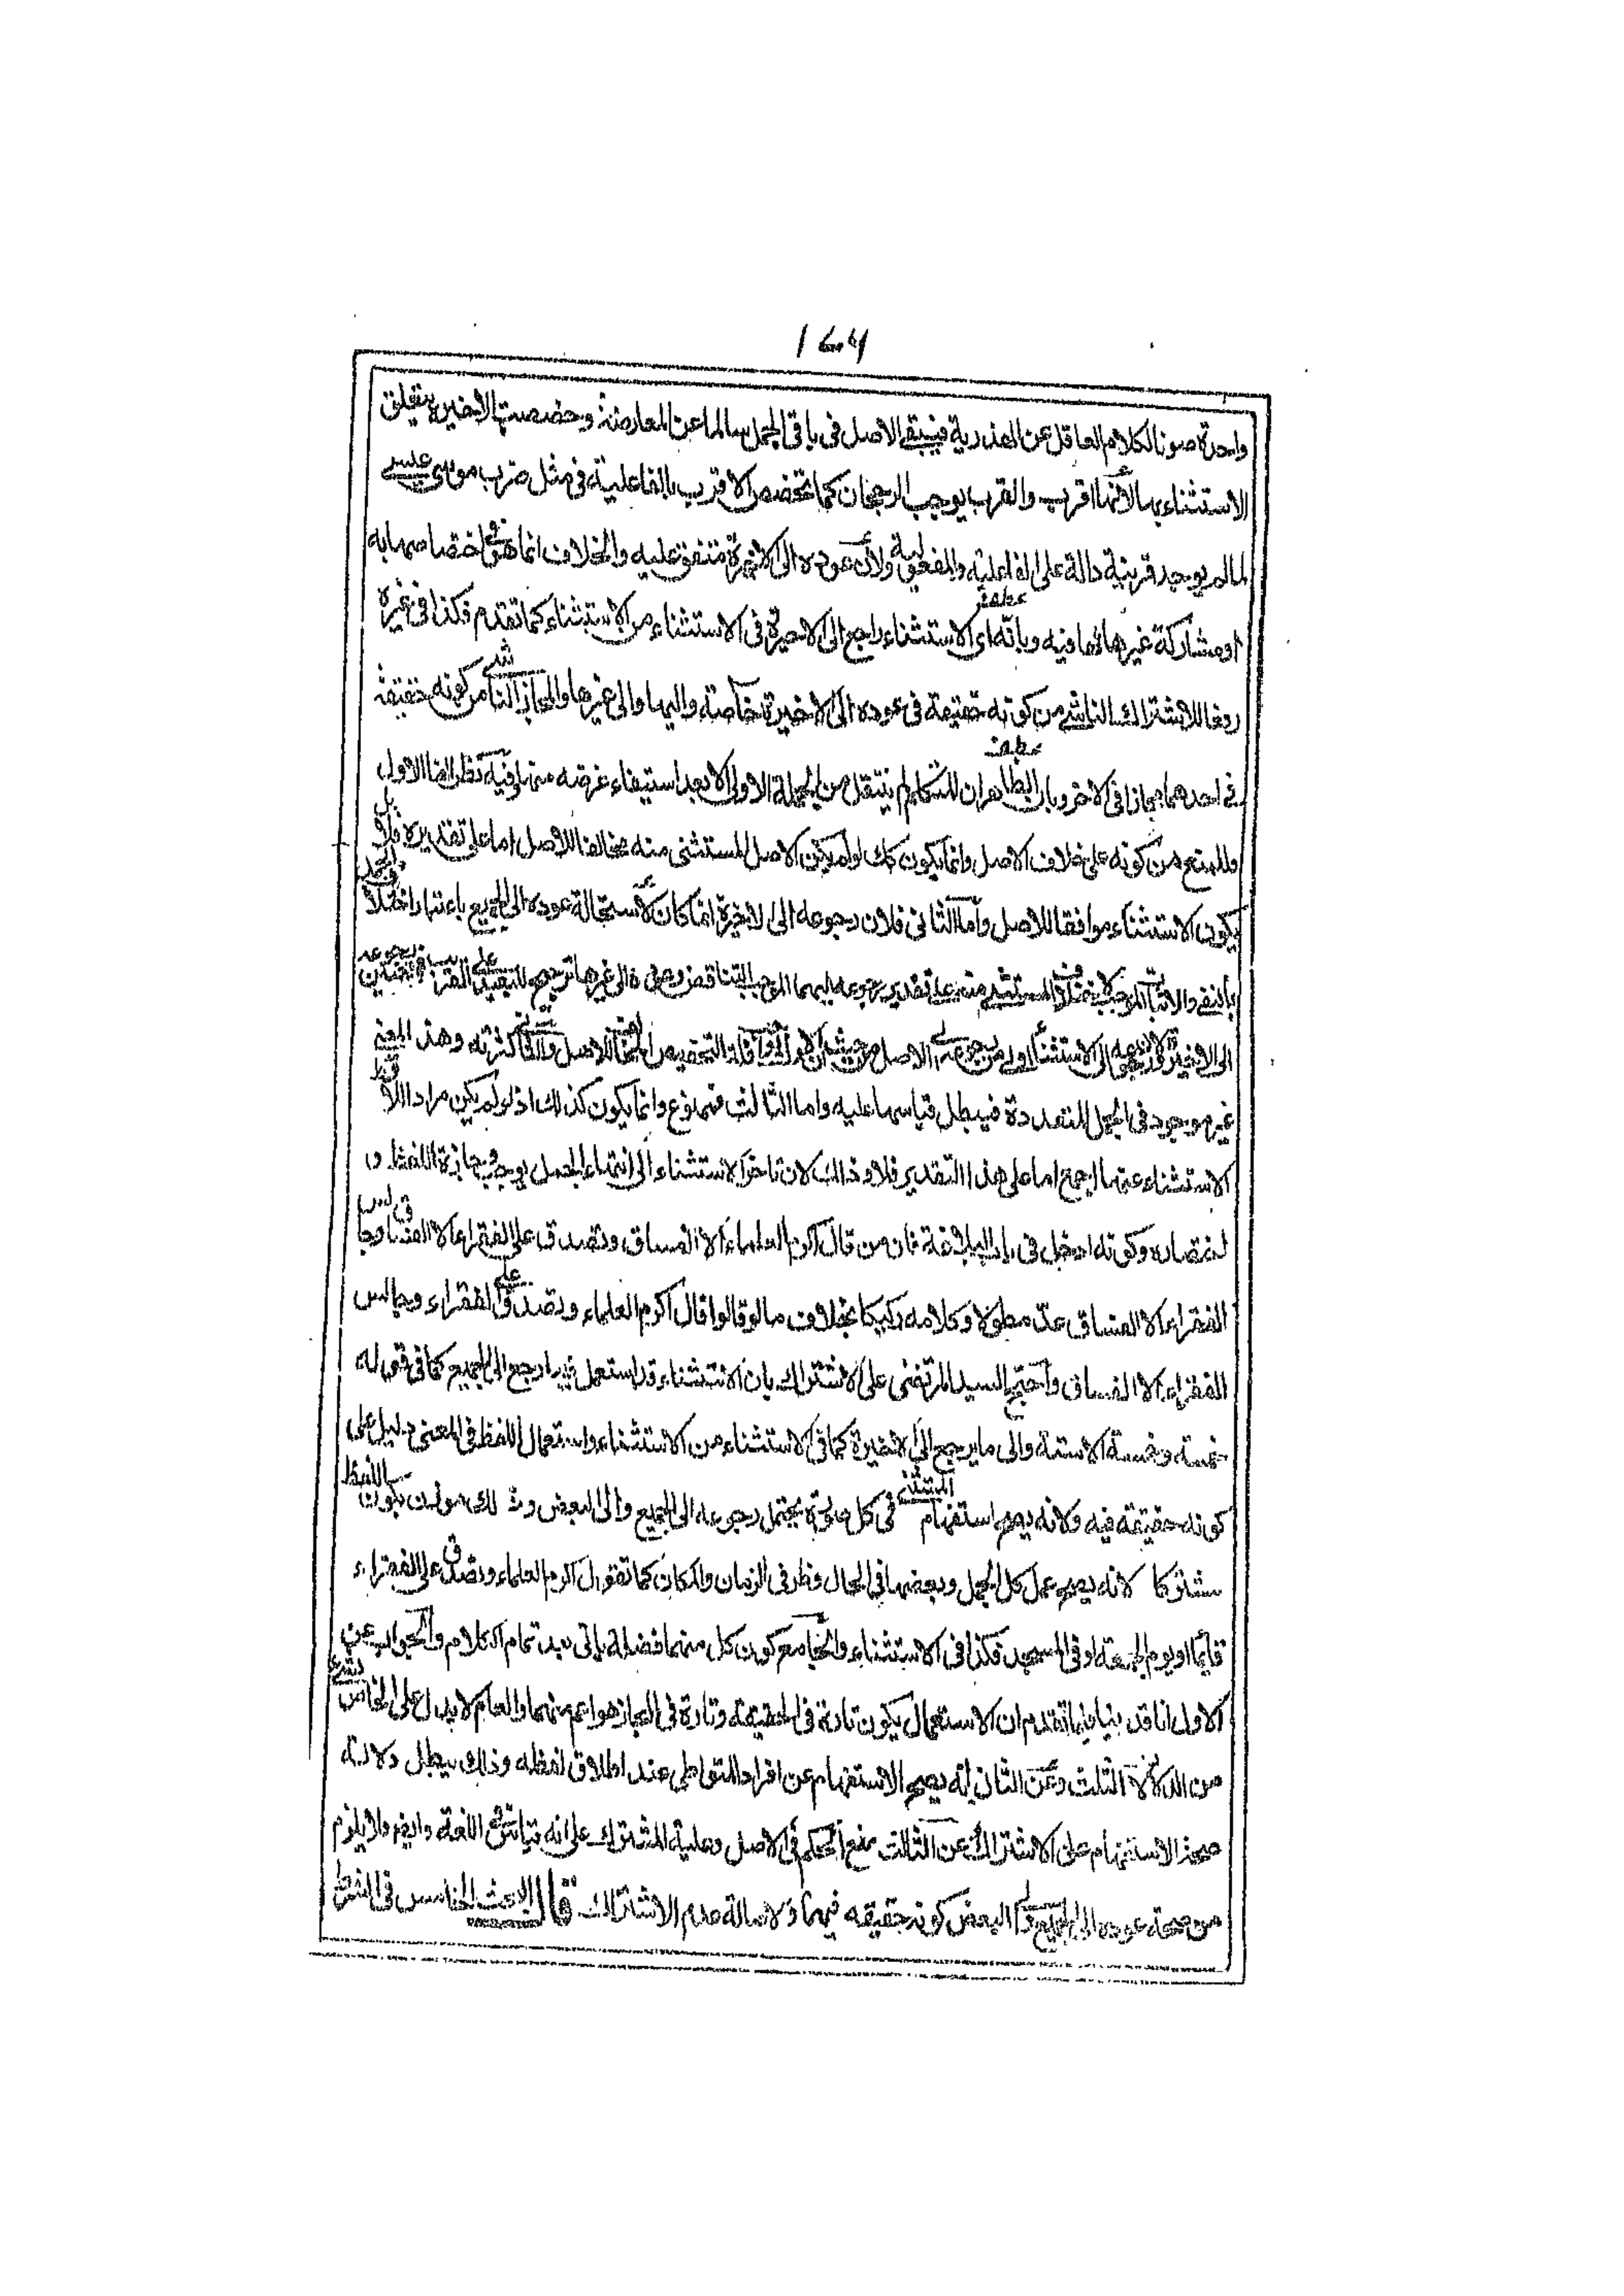 ١٧٦
واحدة صونا لكلام العاقل عن الهذرية فيبقى الاصل فى باقى الجمل سالما عن المعارضة وخصصت الاخيرة بتعلق
الاستثناء بها لانها اقرب والقرب يوجب الرجحان كما تخصص الاقرب بالفاعلية فى مثل ضرب موسى عيسى
لما لم يوجد قرينة دالة على الفاعلية والمفعولية ولان عوده الى الاخيرة متفق عليه والخلاف انما هو فى اختصاصها به
او مشاركة غيرها لها فيه وبانه اى الاستثناء راجع الى الاخيرة فى الاستثناء من الاستثناء كما تقدم فكذا فى غيره
دفعا للاشتراك الناشى من كونه حقيقة فى عوده الى الاخيرة خاصة واليها والى غيرها والمجاز الناشى من كونه حقيقة
فى احدهما مجازا فى الاخر وبان الظاهر ان المتكلم لم ينتقل من الجملة الاولى الا بعد استيفاء غرضه منها وفيه نظر اما الاول
فللمنع من كونه على خلاف الاصل وانما يكون كذلك لو لم يكن الاصل المستثنى منه مخالفا للاصل اما على تقديره فلا بل
يكون الاستثناء موافقا للاصل واما الثانى فلان رجوعه الى الاخيرة انما كان لاستحالة عوده الى الجميع باعتبار اختلاف الجمل
بالنفى والاثبات الموجب لاختلاف المستثنى منه على تقدير رجوعه اليهما الموجب للتناقض
غير موجود فى الجمل المتعددة فيبطل قياسها عليه واما الثالث فممنوع وانما يكون كذلك اذ لو لم يكن مراد اللافظ
الاستثناء عنها اجمع اما على هذا التقدير فلا وذلك لان تاخر الاستثناء الى انتهاء الجمل يوجب وجازة اللفظ و
اختصاره وكونه ادخل فى باب البلاغة فان من قال اكرم العلماء الا الفساق وتصدق على الفقراء الا الفساق وجالس
الفقراء الا الفساق عدّ مطولا وكلامه ركيكا بخلاف ما لو قال اكرم العلماء وتصدق على الفقراء وجالس
الفقراء الا الفساق واحتج السيد المرتضى على الاشتراك بان الاستثناء قد استعمل فيما رجع الى الجميع كما فى قوله
خمسة وخمسة الا ستة والى ما يرجع الى الاخيرة كما فى الاستثناء من الاستثناء واستعمال اللفظ فى المعنى دليل على
كونه حقيقة فيه ولانه يصح استفهام المستثنى فى كل صورة يحتمل رجوعه الى الجميع والى البعض وذلك يكون اللفظ
مشتركا لانه يصح عمل كل الجمل وبعضها فى الحال وظرفى الزمان والمكان كما تقول اكرم العلماء وتصدق على الفقراء
قائما او يوم الجمعة او فى المسجد فكذا فى الاستثناء والجامع كون كل منهما فضلة ياتى بعد تمام الكلام والجواب عن
الاول انا قد بينا فيما تقدم ان الاستعمال يكون تارة فى الحقيقة وتارة فى المجاز فهو اعم منهما والعام لا يدل على الخاص بشئ
من الدلالات الثلث وعن الثانى انه يصح الاستفهام عن افراد المتواطى عند اطلاق لفظه وذلك يبطل دلالته
صحة الاستفهام على الاشتراك وعن الثالث منع الحكم فى الاصل وعلية المشترك على انه قياس فى اللغة وايضا ولا يلزم
من صحة عوده الى الجميع والى البعض كونه حقيقة فيهما ولاصالة عدم الاشتراك قال البحث الخامس فى الشرط